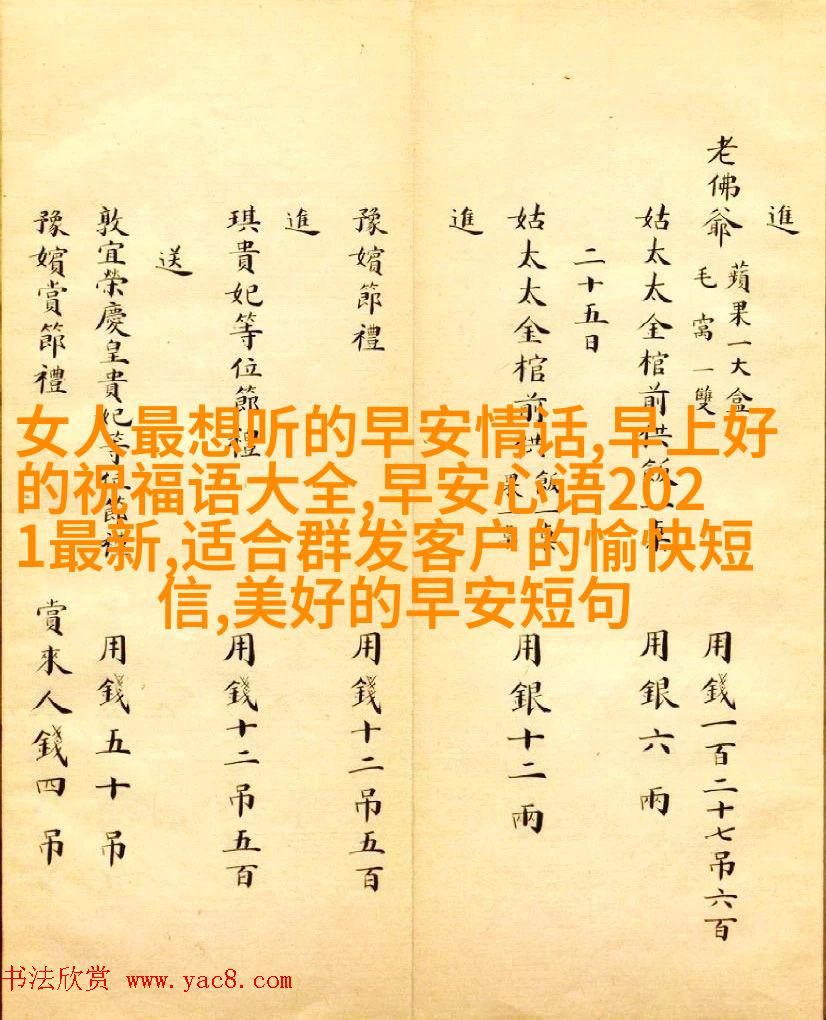 進
老佛爺
蘋果一大盒
毛窩一雙
用錢一百二十七吊六百
姑太太金棺前供飯一桌 用銀六兩
二十五日
姑太太金棺前供
飯一桌
果一桌
用銀十二兩
進
豫嬪節禮 用錢十二吊五百
進
琪貴妃等位節禮 用錢十二吊五百
送
敦宜榮慶皇貴妃等位節禮 用錢五十吊
豫嬪賞節禮 賞來人錢四吊
女人最想听的早安情话,早上好
的祝福语大全,早安心语202
1最新,适合群发客户的愉快短
信,美好的早安短句
书法欣赏 www.yac8.com